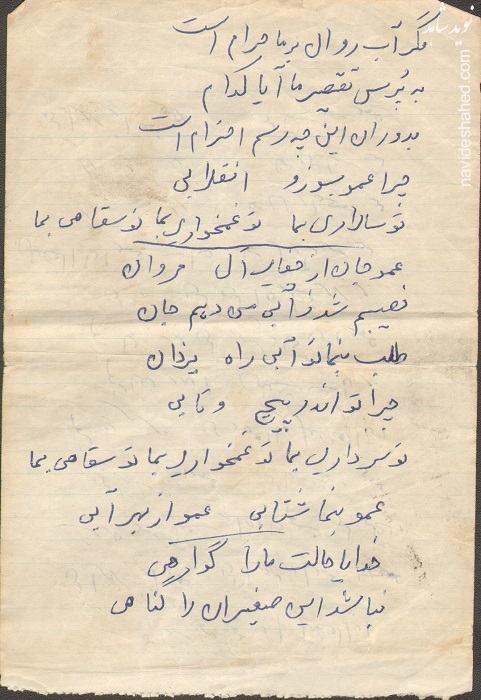 مگر آب روان بر ما حرام است
به پرس تقصیر ما آیا کدام
بدوران این چه رسم احترام است
چرا عمو بسوزو انقلابی
تو سالاری بما تو غمخواری بما تو سقاهی بما
عمو جان از جفای آل مروان
نصیبم شد ز آبی می دهم جان
طلب بنما تو آبی راه یزدان
چرا تو اندر پیچ و تابی
تو سرداری بما تو غمخواری بما تو سقاهی بما
عمو بنما شتابی عمو از بهر آبی
خدایا حالت ما را گواهی
نباشد این صغیران را گناهی
نوید شاهد
navideshahed.com